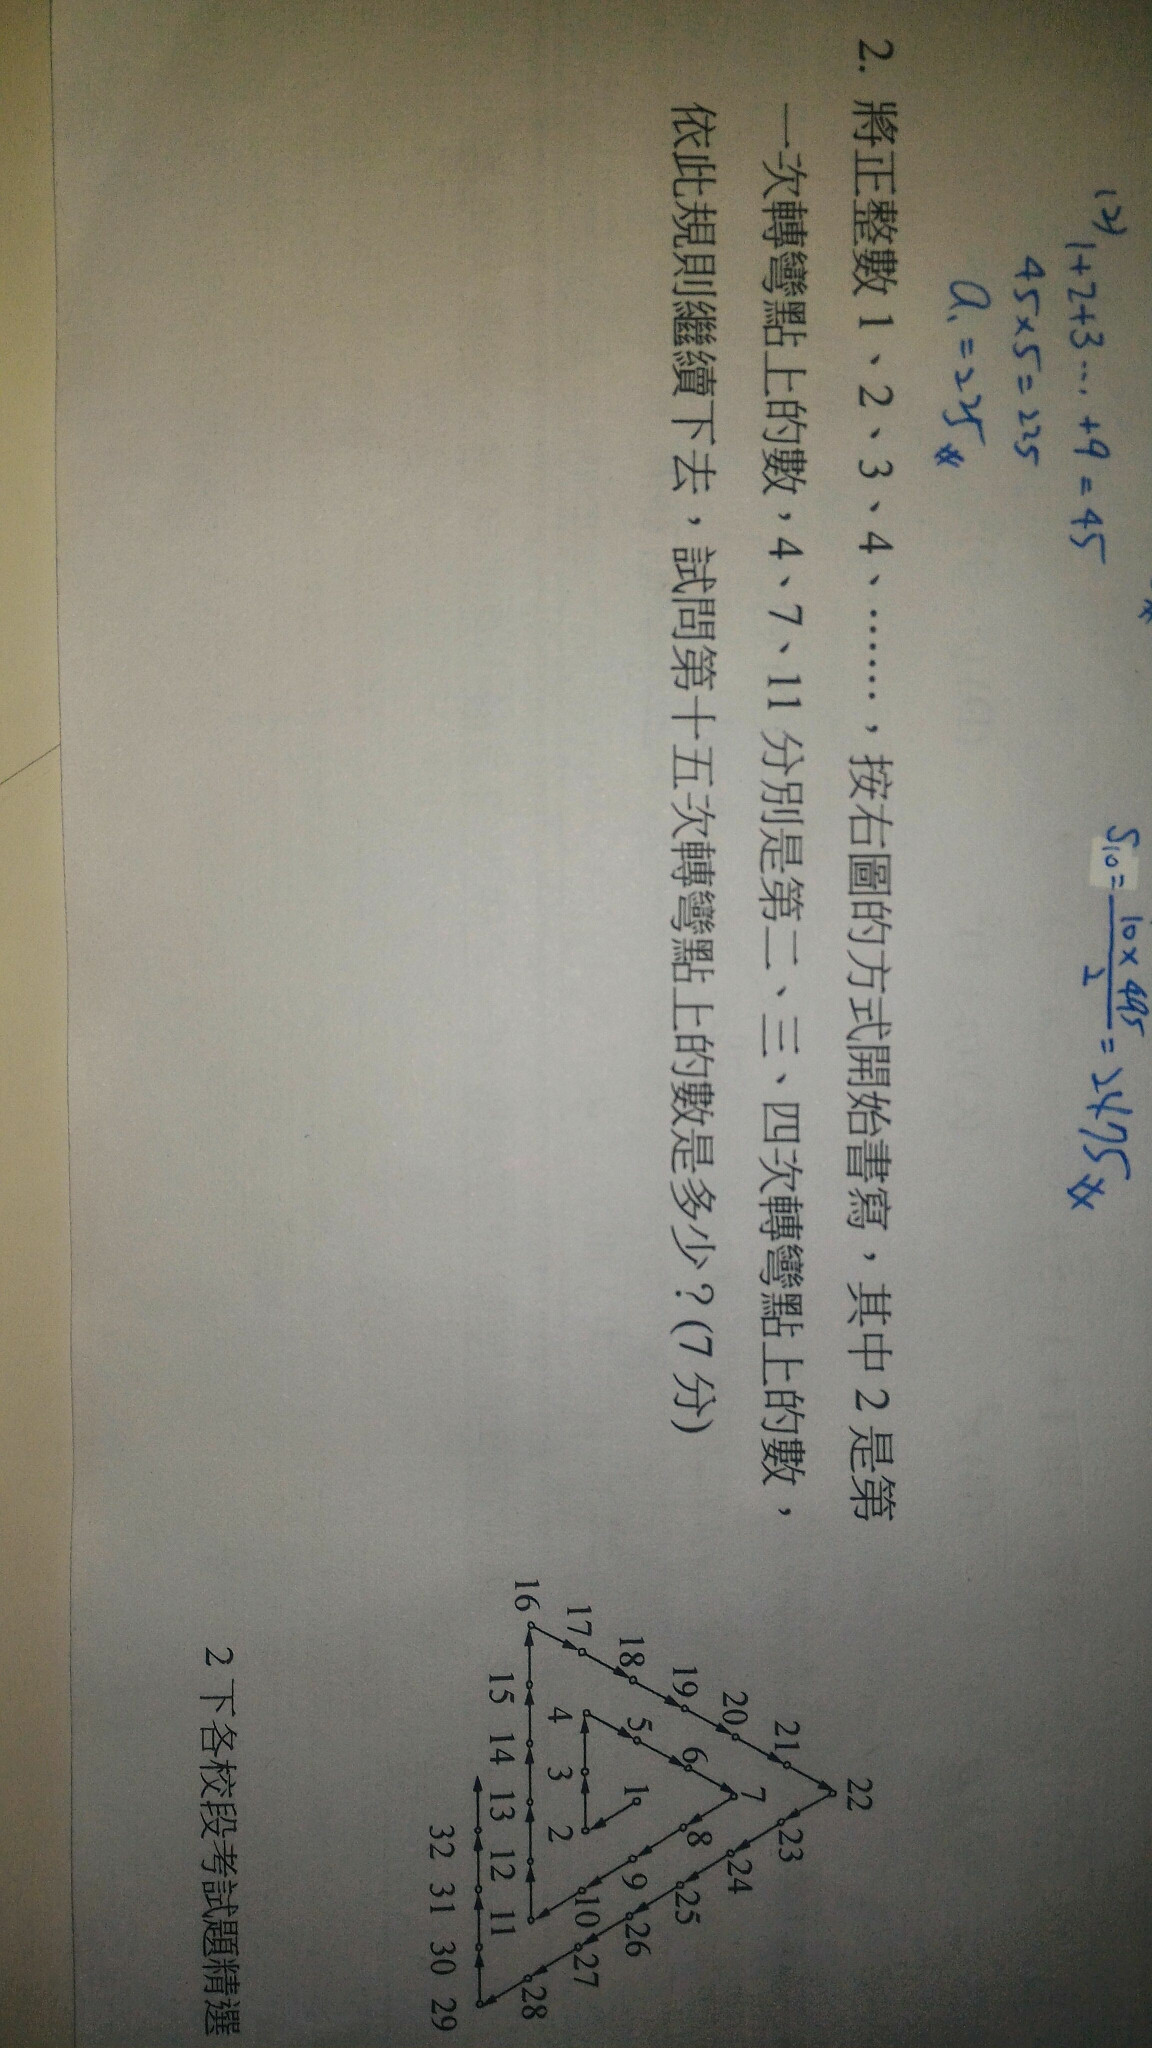 (2)
1+2+3… +9=45
45×5=225
a₁=225
S₁₀= 10×495 / 2 = 2475
2. 將正整數 1、2、3、4、……，按右圖的方式開始書寫，其中 2 是第
一次轉彎點上的數，4、7、11 分別是第二、三、四次轉彎點上的數，
依此規則繼續下去，試問第十五次轉彎點上的數是多少？(7 分)
22
21 23
20 7 24
19 6 8 25
18 5 1 9 26
17 4 3 2 10 27
16 15 14 13 12 11 28
32 31 30 29
2 下各校段考試題精選